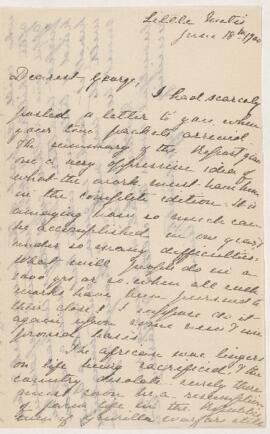 Little Metis
June 18th 1900
Dearest George,
I had scarcely
posted a letter to you when
your two packets arrived
The summary of the Report gives
one a very oppressive idea of
what the work must have been
in the complete edition. It is
amazing how so much can
be accomplished in one year
under so many difficulties.
What will people do in a
1000 yrs or so, when all such
works have been pursued to
their close? I suppose do it
again upon some new &
proved basis.
The African war lingers
on life being sacrificed & the
country desolate. surely there
must soon be a resumption
of farm life in the Republics
even if guerilla warfare still